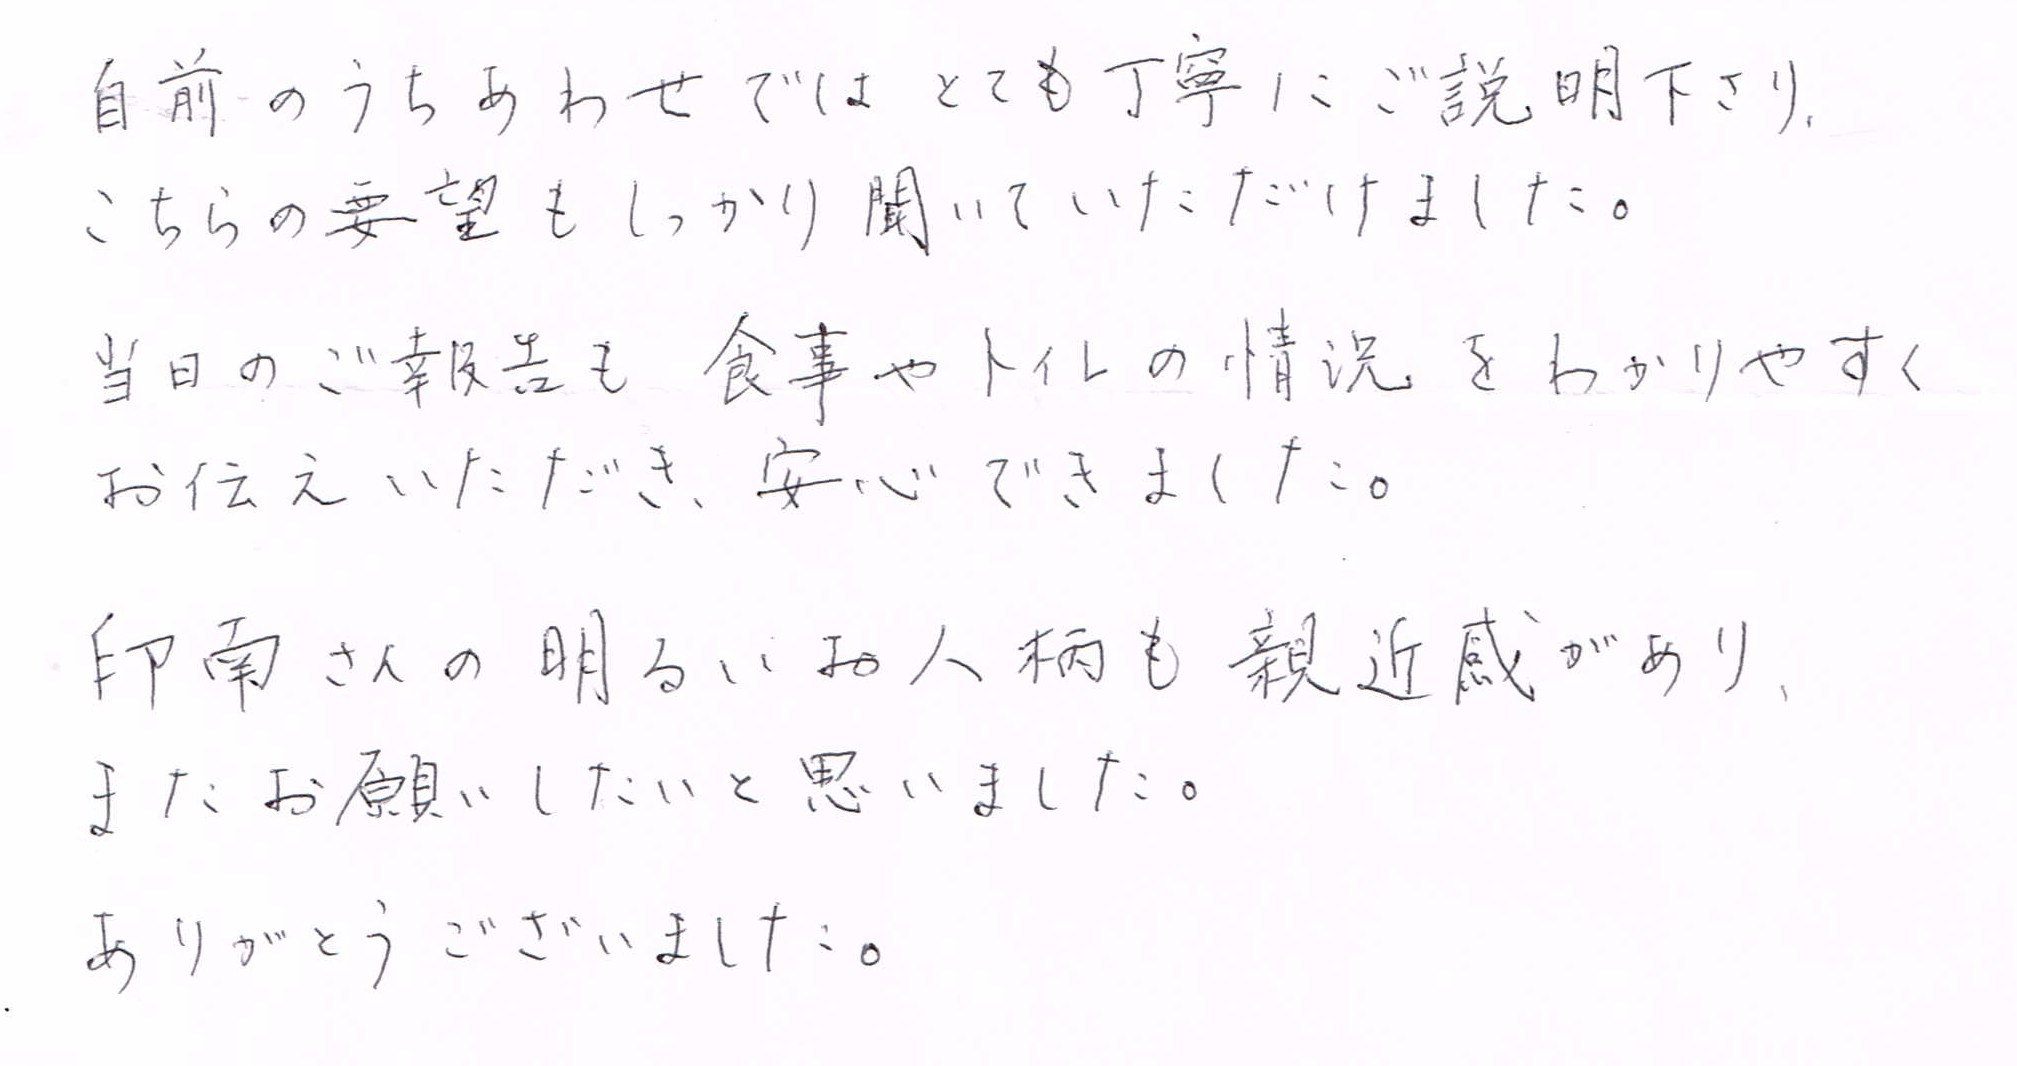 自前のうちあわせではとても丁寧にご説明下さり、
こちらの要望もしっかり聞いていただけました。
当日のご報告も食事やトイレの情況をわかりやすく
お伝えいただき、安心できました。
印南さんの明るいお人柄も親近感があり、
またお願いしたいと思いました。
ありがとうございました。